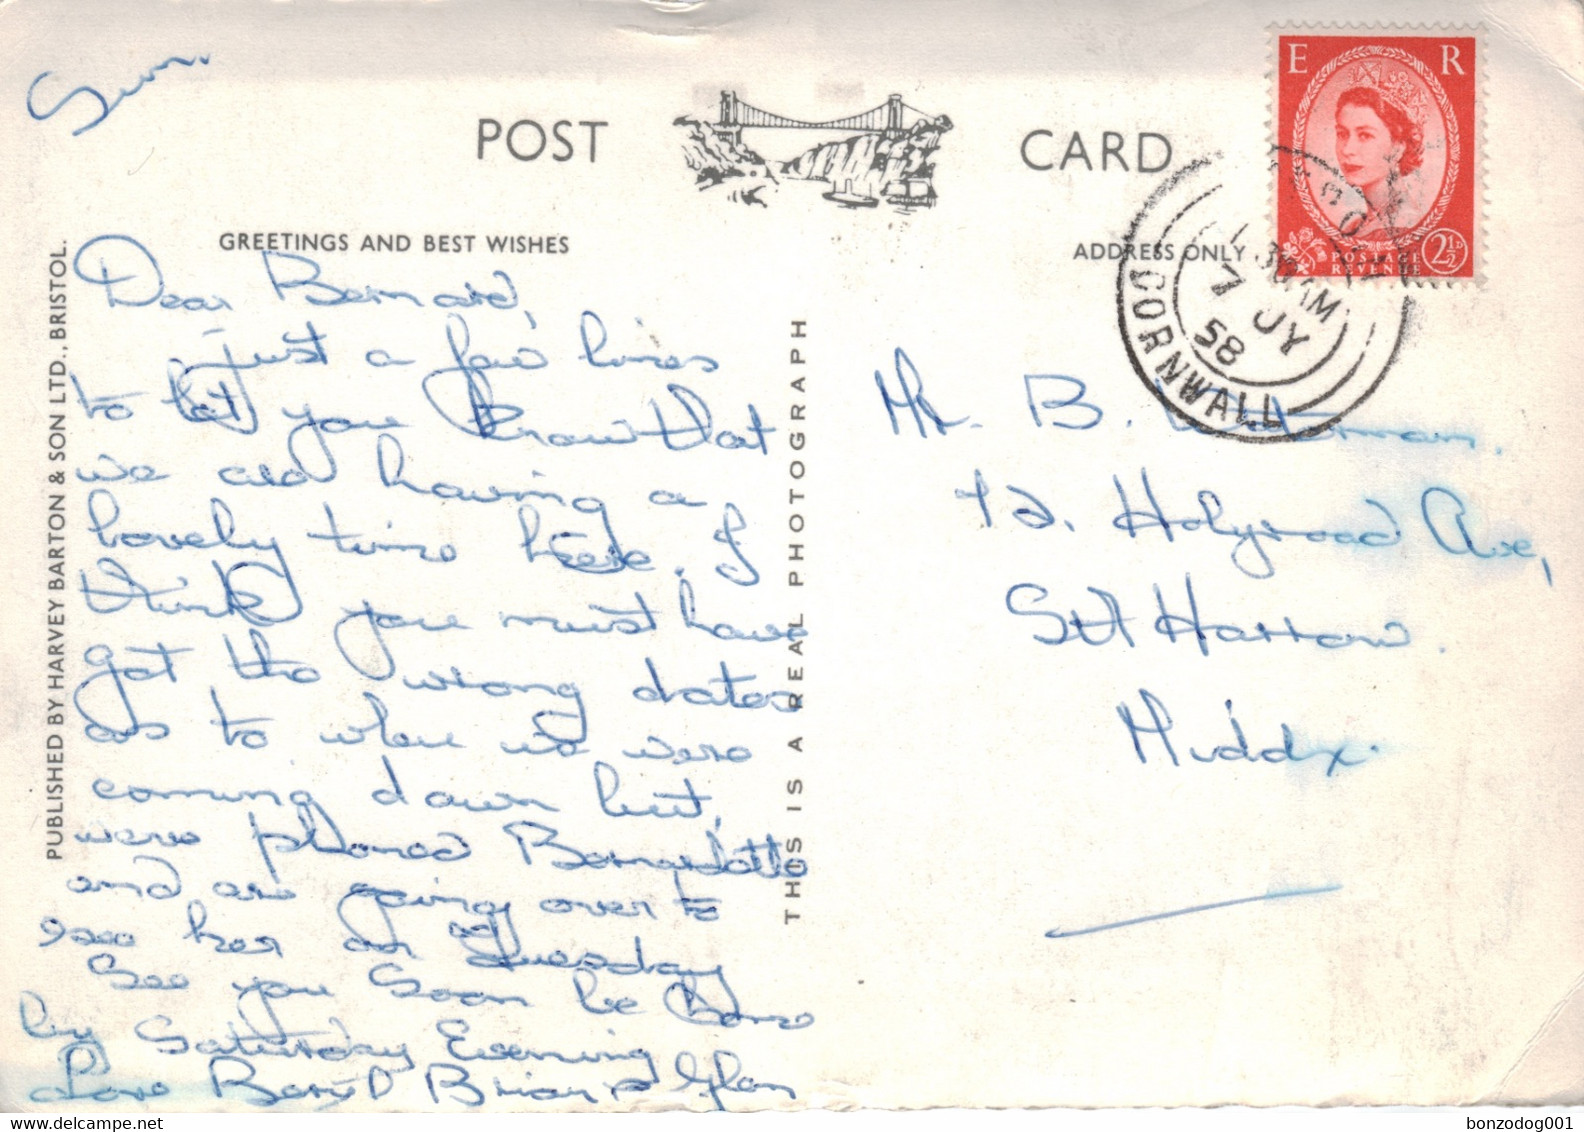 Sun.
POST CARD
GREETINGS AND BEST WISHES
ADDRESS ONLY
PUBLISHED BY HARVEY BARTON & SON LTD., BRISTOL.
THIS IS A REAL PHOTOGRAPH
E R
POSTAGE
REVENUE
2½D
AM
7 JY
58
CORNWALL
Dear Bernard,
just a few lines
to let you know that
we are having a
lovely time here. I
think you must have
got the wrong dates
as to when we were
coming down but,
were phoned
and are going over to
see her on Tuesday
See you soon be home
by Saturday Evening
Love Beryl Brian & Glen
Mr B.
12, Holyrood Ave,
Sth Harrow.
Middx.
bonzodog001